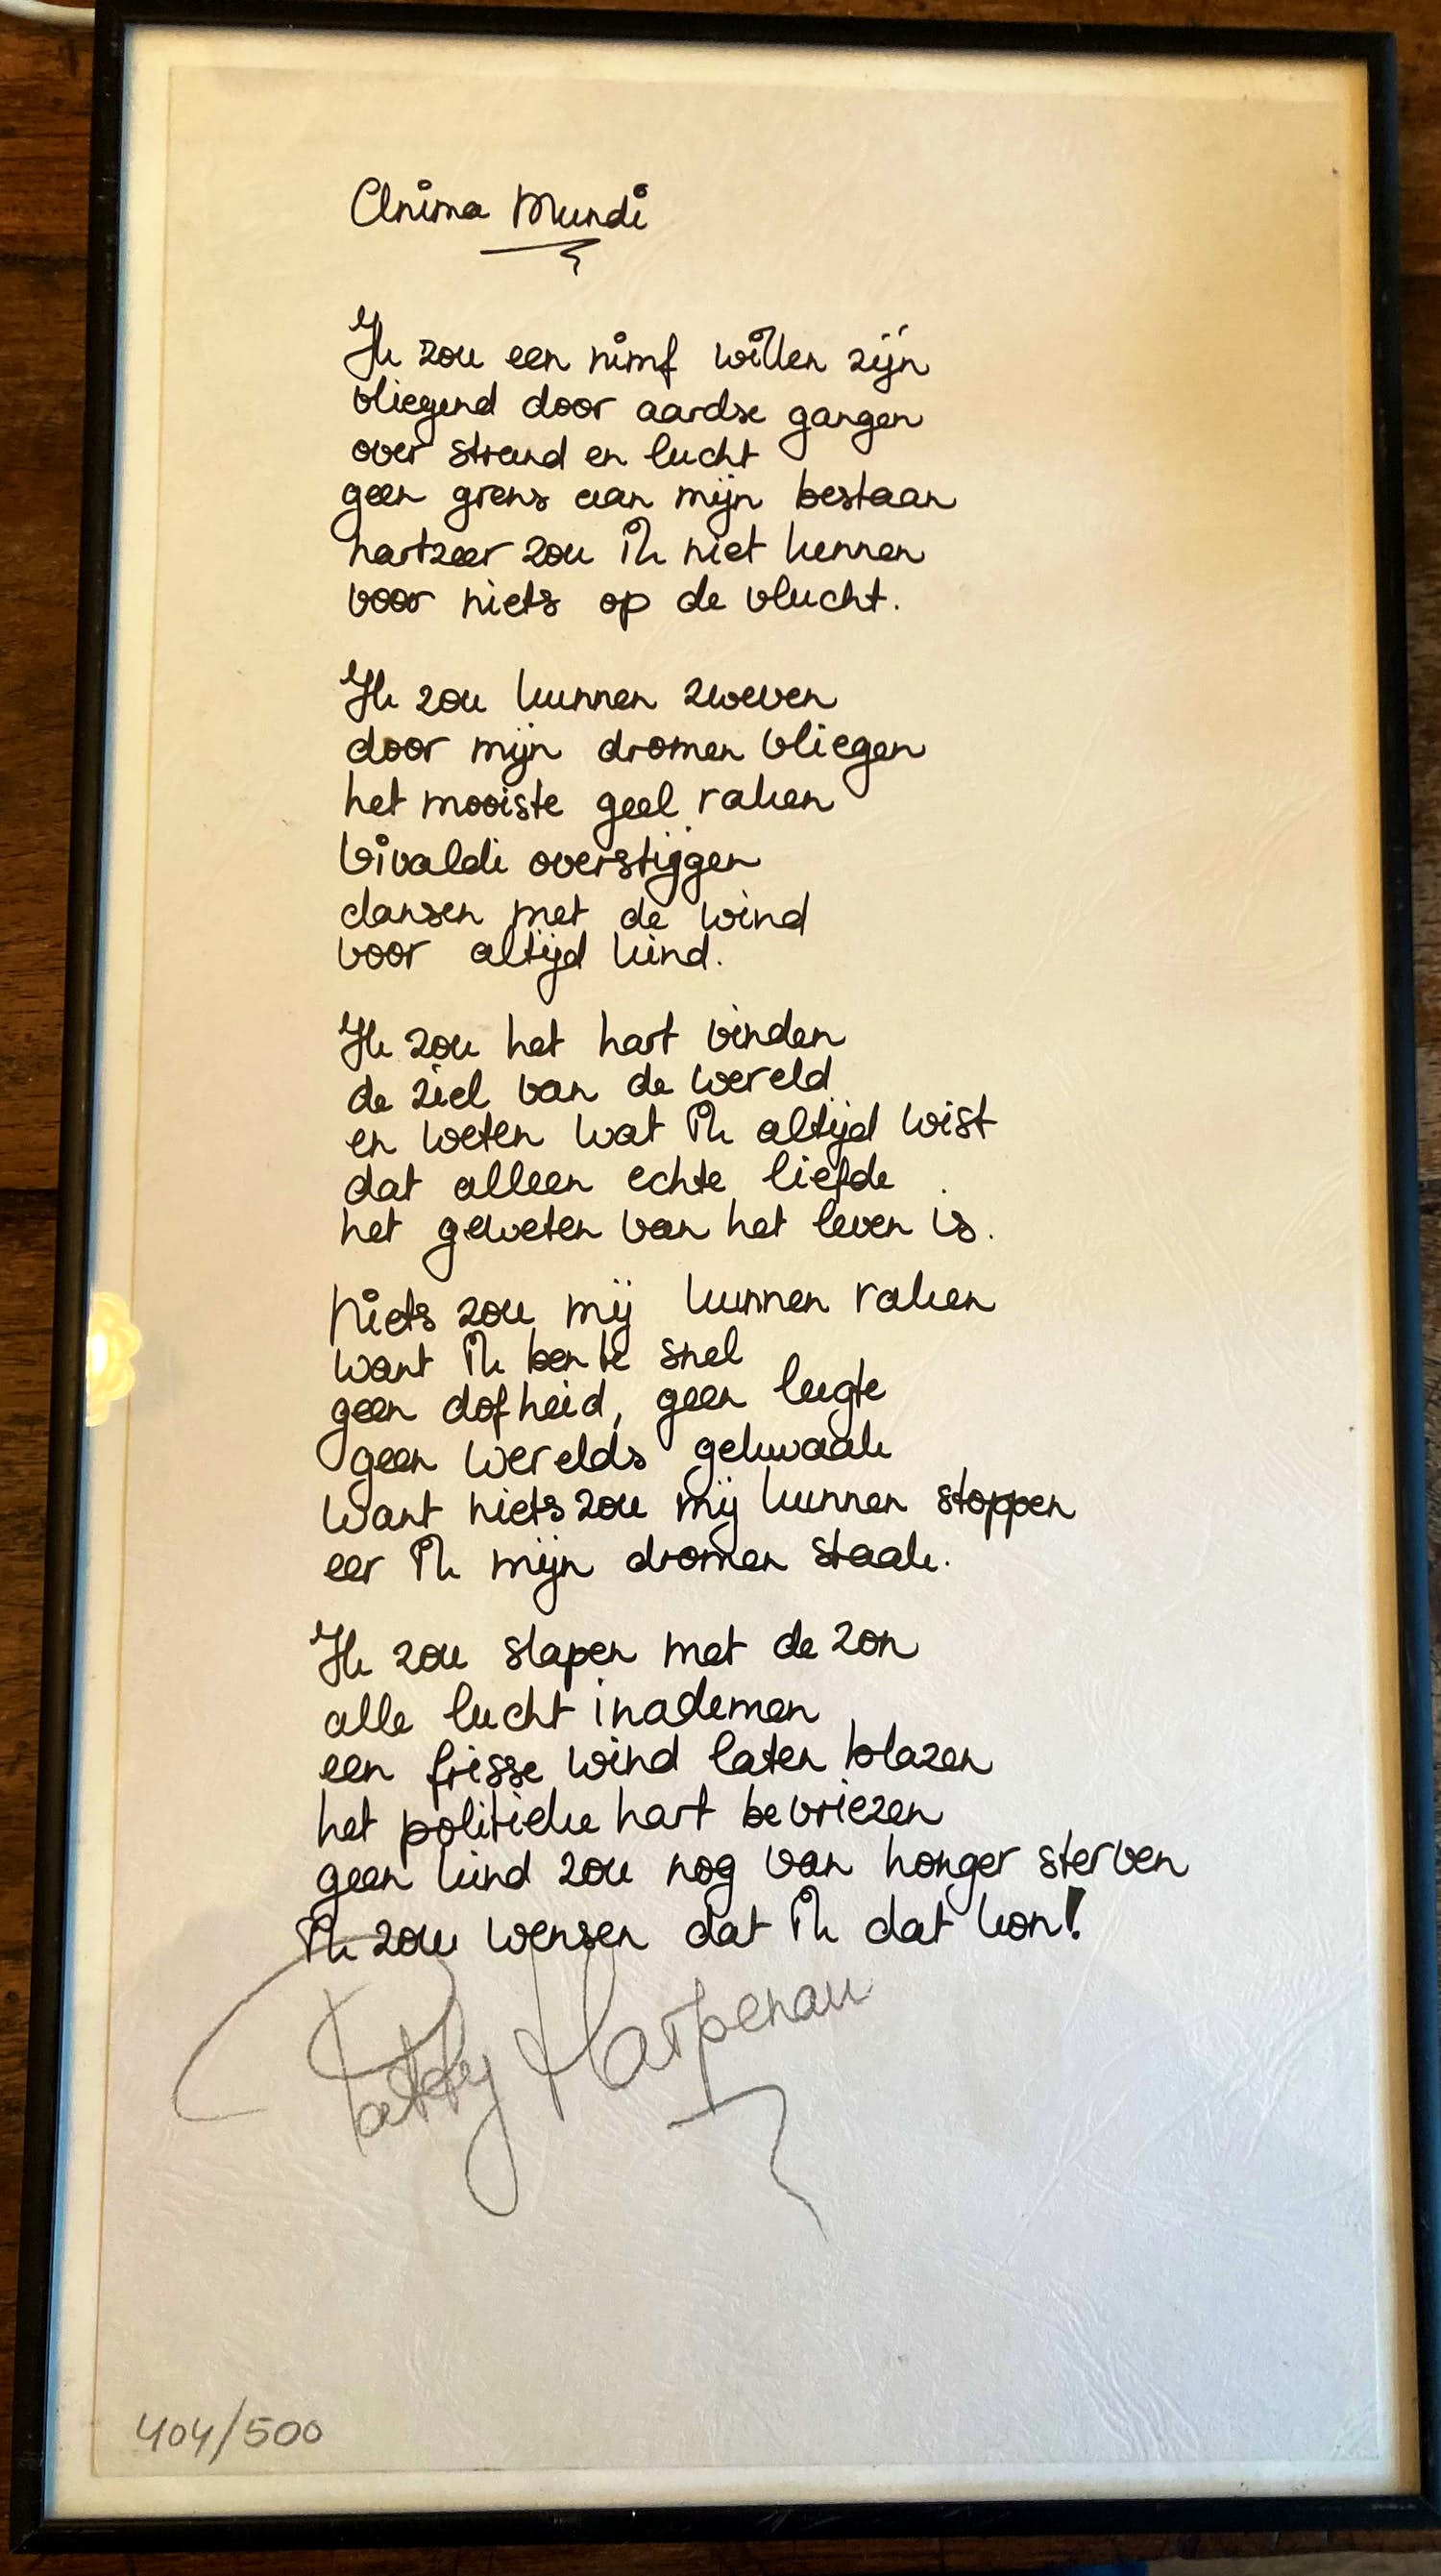 Anima Mundi
Ik zou een nimf willen zijn
vliegend door aardse gangen
over strand en lucht
geen grens aan mijn bestaan
hartzeer zou ik niet kennen
voor niets op de vlucht.
Ik zou kunnen zweven
door mijn dromen vliegen
het mooiste geel raken
Vivaldi overstijgen
dansen met de wind
voor altijd kind.
Ik zou het hart vinden
de ziel van de wereld
en weten wat ik altijd wist
dat alleen echte liefde
het geweten van het leven is.
Niets zou mij kunnen raken
want ik ben te snel
geen dofheid, geen leegte
geen werelds gekwaak
want niets zou mij kunnen stoppen
eer ik mijn dromen staak.
Ik zou slapen met de zon
alle lucht inademen
een frisse wind laten blazen
het politieke hart bevriezen
geen kind zou nog van honger sterven
Ik zou wensen dat ik dat kon!
Patty Harpenau
404/500